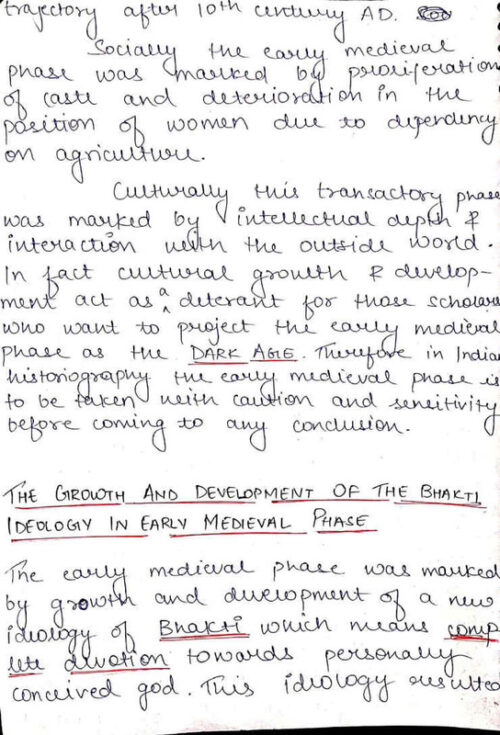 trajectory after 10th century AD.
Socially the early medieval
phase was marked by proliferation
of caste and deterioration in the
position of women due to dependency
on agriculture.
Culturally this transactory phase
was marked by intellectual depth &
interaction with the outside world.
In fact cultural growth & develop-
ment act as a deterant for those scholars
who want to project the early medieval
phase as the DARK AGE. Therefore in Indian
historiography the early medieval phase is
to be taken with caution and sensitivity
before coming to any conclusion.
THE GROWTH AND DEVELOPMENT OF THE BHAKTI
IDEOLOGY IN EARLY MEDIEVAL PHASE
The early medieval phase was marked
by growth and development of a new
ideology of Bhakti which means comp
lete devotion towards personally
conceived god. This ideology resulted